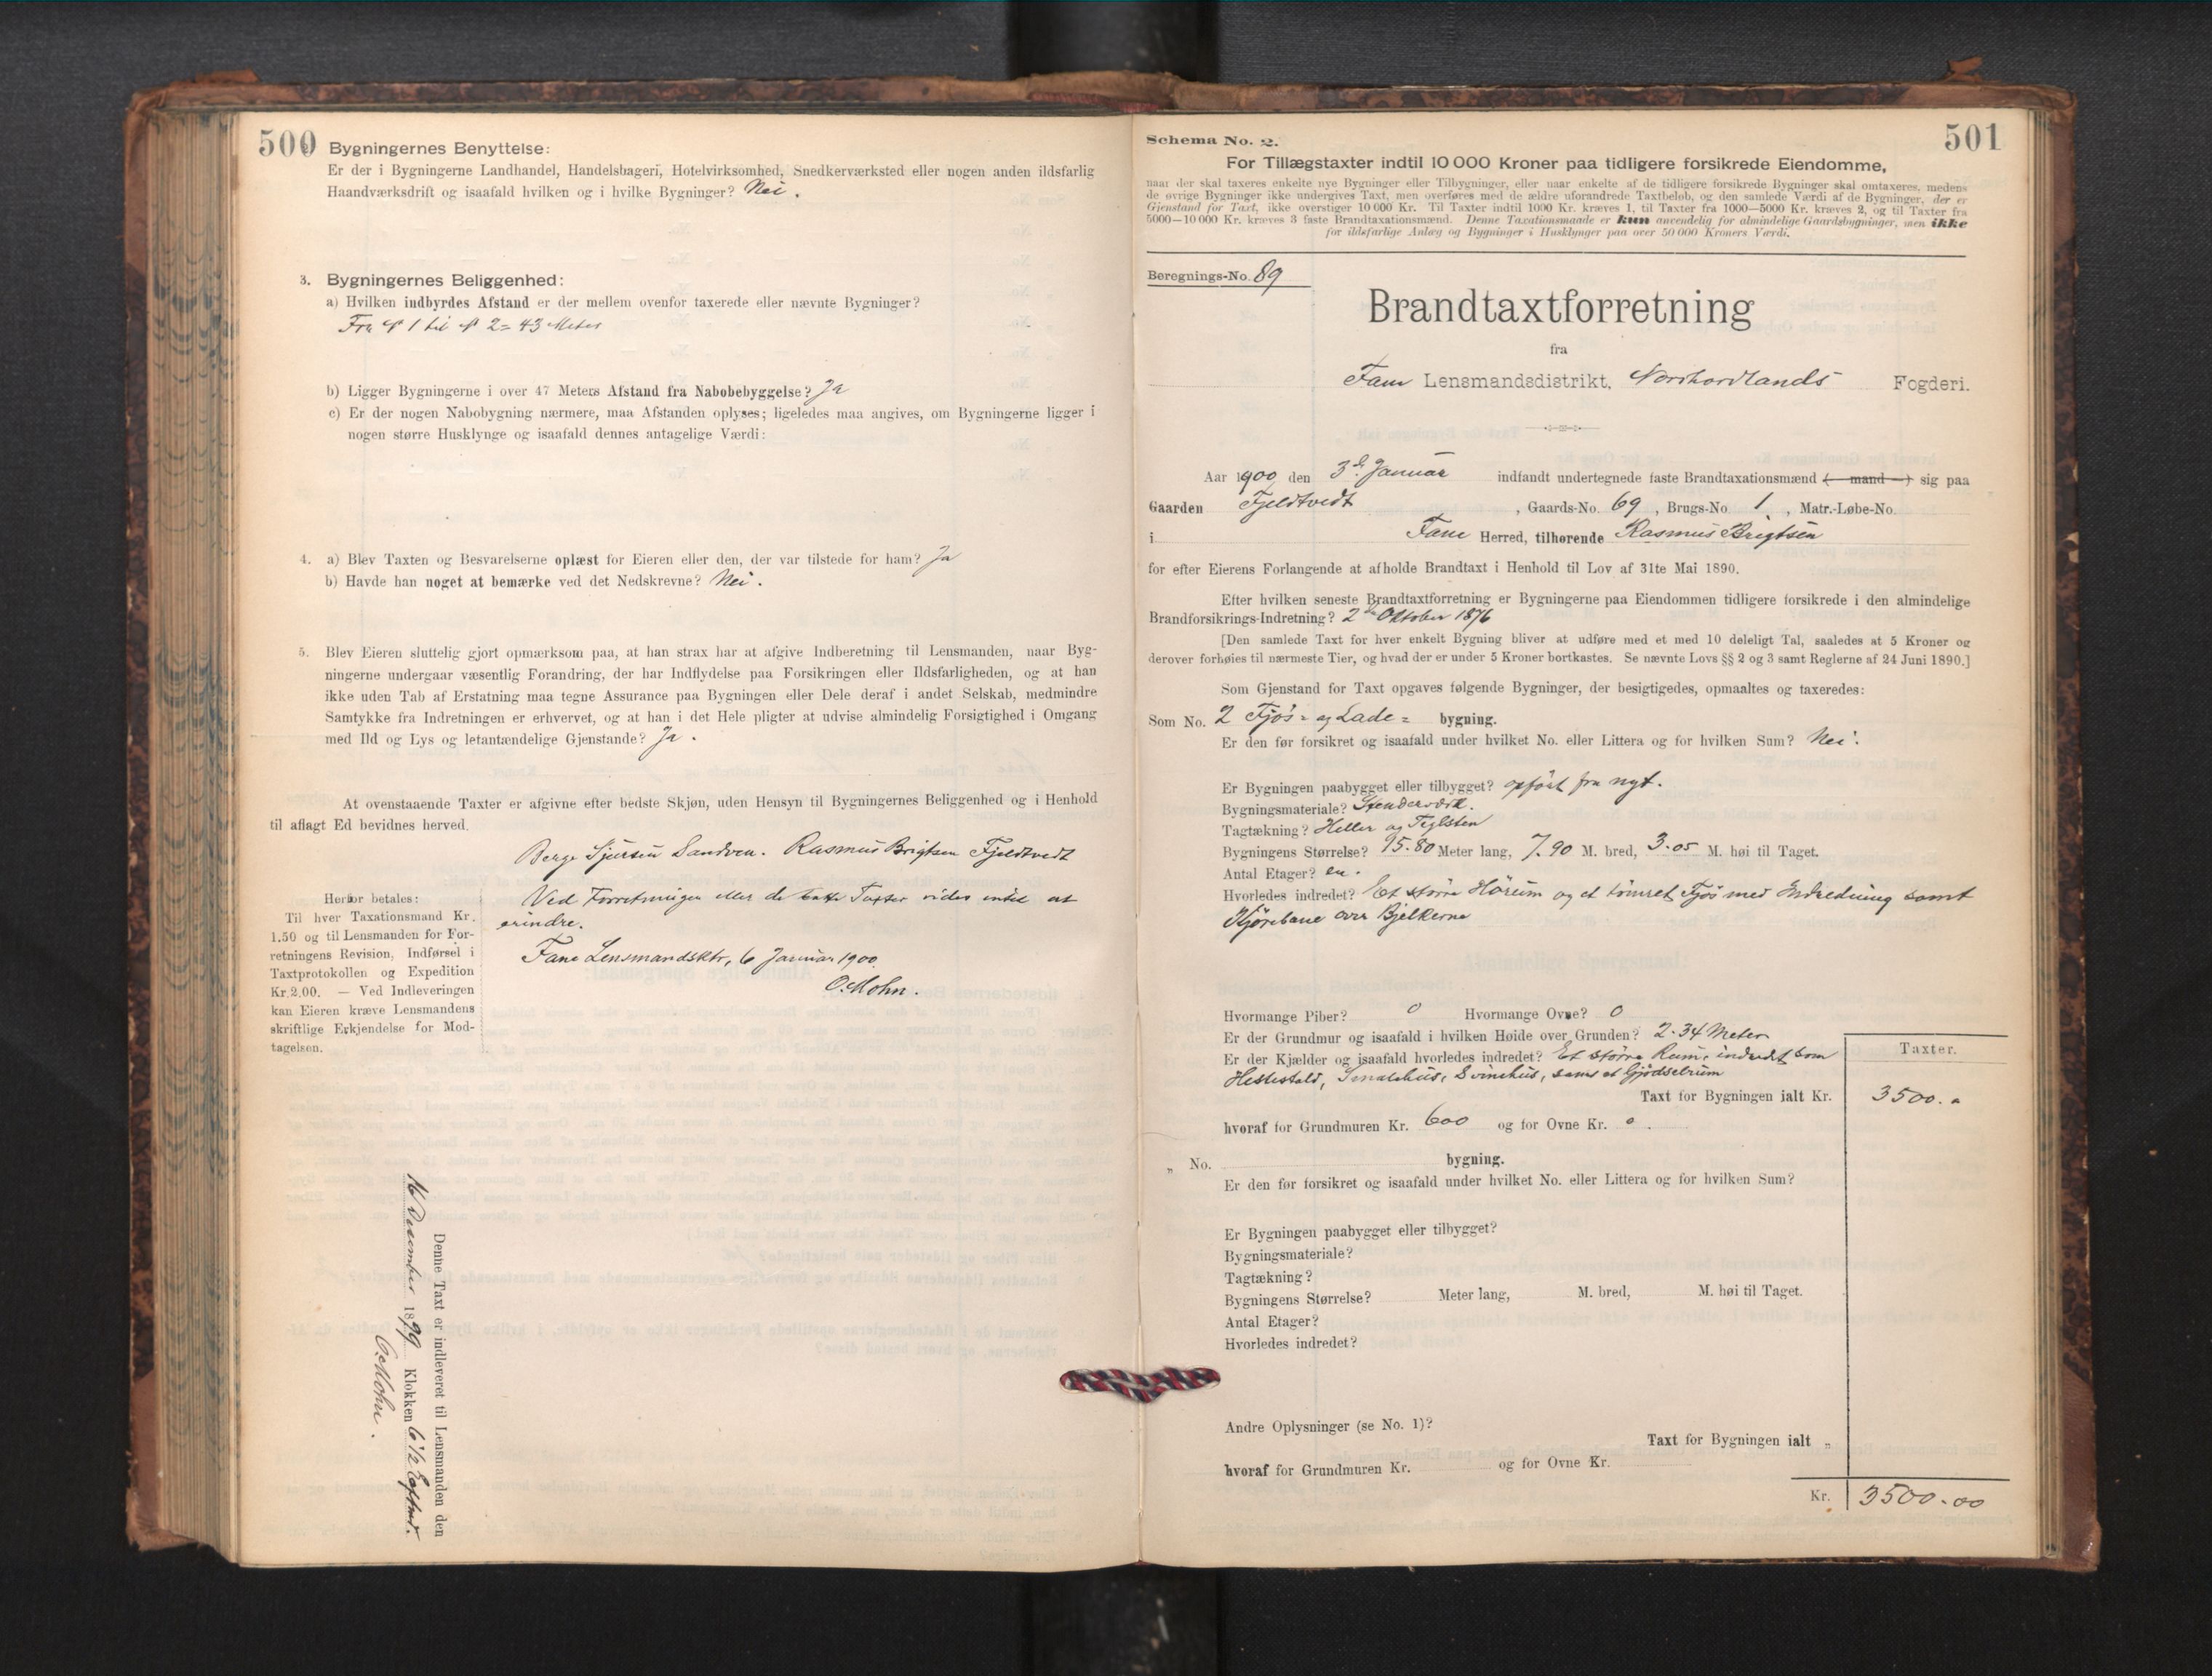 500
Bygningernes Benyttelse:
Er der i Bygningerne Landhandel, Handelsbageri, Hotelvirksomhed, Snedkerværksted eller nogen anden ildsfarlig
Haandværksdrift og isaafald hvilken og i hvilke Bygninger? Nei.
3. Bygningernes Beliggenhed:
a) Hvilken indbyrdes Afstand er der mellem ovenfor taxerede eller nævnte Bygninger?
Fra № 1 til № 2 = 43 Meter
b) Ligger Bygningerne i over 47 Meters Afstand fra Nabobebyggelse? Ja
c) Er der nogen Nabobygning nærmere, maa Afstanden oplyses; ligeledes maa angives, om Bygningerne ligger i
nogen større Husklynge og isaafald dennes antagelige Værdi:
4. a) Blev Taxten og Besvarelserne oplæst for Eieren eller den, der var tilstede for ham? Ja
b) Havde han noget at bemærke ved det Nedskrevne? Nei.
5. Blev Eieren sluttelig gjort opmærksom paa, at han strax har at afgive Indberetning til Lensmanden, naar Byg-
ningerne undergaar væsentlig Forandring, der har Indflydelse paa Forsikringen eller Ildsfarligheden, og at han
ikke uden Tab af Erstatning maa tegne Assurance paa Bygningen eller Dele deraf i andet Selskab, medmindre
Samtykke fra Indretningen er erhvervet, og at han i det Hele pligter at udvise almindelig Forsigtighed i Omgang
med Ild og Lys og letantændelige Gjenstande? Ja.
At ovenstaaende Taxter er afgivne efter bedste Skjøn, uden Hensyn til Bygningernes Beliggenhed og i Henhold
til aflagt Ed bevidnes herved.
Berge Sjursen Sandven. Rasmus Brigtsen Fjeldtvedt
Ved Forretningen eller de satte Taxter vides intet at
erindre.
Fane Lensmandsktr, 6 Januar 1900.
O. Mohn.
Herfor betales:
Til hver Taxationsmand Kr.
1.50 og til Lensmanden for For-
retningens Revision, Indførsel i
Taxtprotokollen og Expedition
Kr. 2.00. — Ved Indleveringen
kan Eieren kræve Lensmandens
skriftlige Erkjendelse for Mod-
tagelsen.
Denne Taxt er indleveret til Lensmanden den
16 Desember 1899 Klokken 6 1/2 Efterm.
O. Mohn.
501
Schema No. 2.
For Tillægstaxter indtil 10 000 Kroner paa tidligere forsikrede Eiendomme,
naar der skal taxeres enkelte nye Bygninger eller Tilbygninger, eller naar enkelte af de tidligere forsikrede Bygninger skal omtaxeres, medens
de øvrige Bygninger ikke undergives Taxt, men overføres med de ældre uforandrede Taxtbeløb, og den samlede Værdi af de Bygninger, der er
Gjenstand for Taxt, ikke overstiger 10 000 Kr. Til Taxter indtil 1000 Kr. kræves 1, til Taxter fra 1000—5000 Kr. kræves 2, og til Taxter fra
5000—10 000 Kr. kræves 3 faste Brandtaxationsmænd. Denne Taxationsmaade er kun anvendelig for almindelige Gaardsbygninger, men ikke
for ildsfarlige Anlæg og Bygninger i Husklynger paa over 50 000 Kroners Værdi.
Beregnings-No. 89
Brandtaxtforretning
fra
Fane Lensmandsdistrikt, Nordhordlands Fogderi.
Aar 1900 den 3d. Januar indfandt undertegnede faste Brandtaxationsmænd (— mand —) sig paa
Gaarden Fjeldtvedt, Gaards-No. 69, Brugs-No 1, Matr.-Løbe-No.
i Fane Herred, tilhørende Rasmus Brigtsen
for efter Eierens Forlangende at afholde Brandtaxt i Henhold til Lov af 31te Mai 1890.
Efter hvilken seneste Brandtaxtforretning er Bygningerne paa Eiendommen tidligere forsikrede i den almindelige
Brandforsikrings-Indretning? 2den Oktober 1876
[Den samlede Taxt for hver enkelt Bygning bliver at udføre med et med 10 deleligt Tal, saaledes at 5 Kroner og
derover forhøies til nærmeste Tier, og hvad der er under 5 Kroner bortkastes. Se nævnte Lovs §§ 2 og 3 samt Reglerne af 24 Juni 1890.]
Som Gjenstand for Taxt opgaves følgende Bygninger, der besigtigedes, opmaaltes og taxeredes:
Som No. 2 Fjøs= og Lade= bygning.
Er den før forsikret og isaafald under hvilket No. eller Littera og for hvilken Sum? Nei.
Er Bygningen paabygget eller tilbygget? opført fra nyt.
Bygningsmateriale? Stenderværk.
Tagtækning? Heller og Teglsten
Bygningens Størrelse? 15.80 Meter lang, 7.90 M. bred, 3.05 M. høi til Taget.
Antal Etager? en.
Hvorledes indredet? Et større Hørum og et tømret Fjøs med Indredning samt
Kjørebane over Bjelkerne
Hvormange Piber? 0 Hvormange Ovne? 0
Er der Grundmur og isaafald i hvilken Høide over Grunden? 2.34 Meter
Er der Kjælder og isaafald hvorledes indredet? Et større Rum, indredet som
Hestestald, Smalehus, Svinehus, samt et Gjødselrum
Taxter.
Taxt for Bygningen ialt Kr. 3500.
hvoraf for Grundmuren Kr. 600 og for Ovne Kr. 0.
„ No. bygning.
Er den før forsikret og isaafald under hvilket No. eller Littera og for hvilken Sum?
Er Bygningen paabygget eller tilbygget?
Bygningsmateriale?
Tagtækning?
Bygningens Størrelse? Meter lang, M. bred, M. høi til Taget.
Antal Etager?
Hvorledes indredet?
Andre Oplysninger (se No. 1)?
Taxt for Bygningen ialt „
hvoraf for Grundmuren Kr. og for Ovne Kr.
Kr. 3500.00